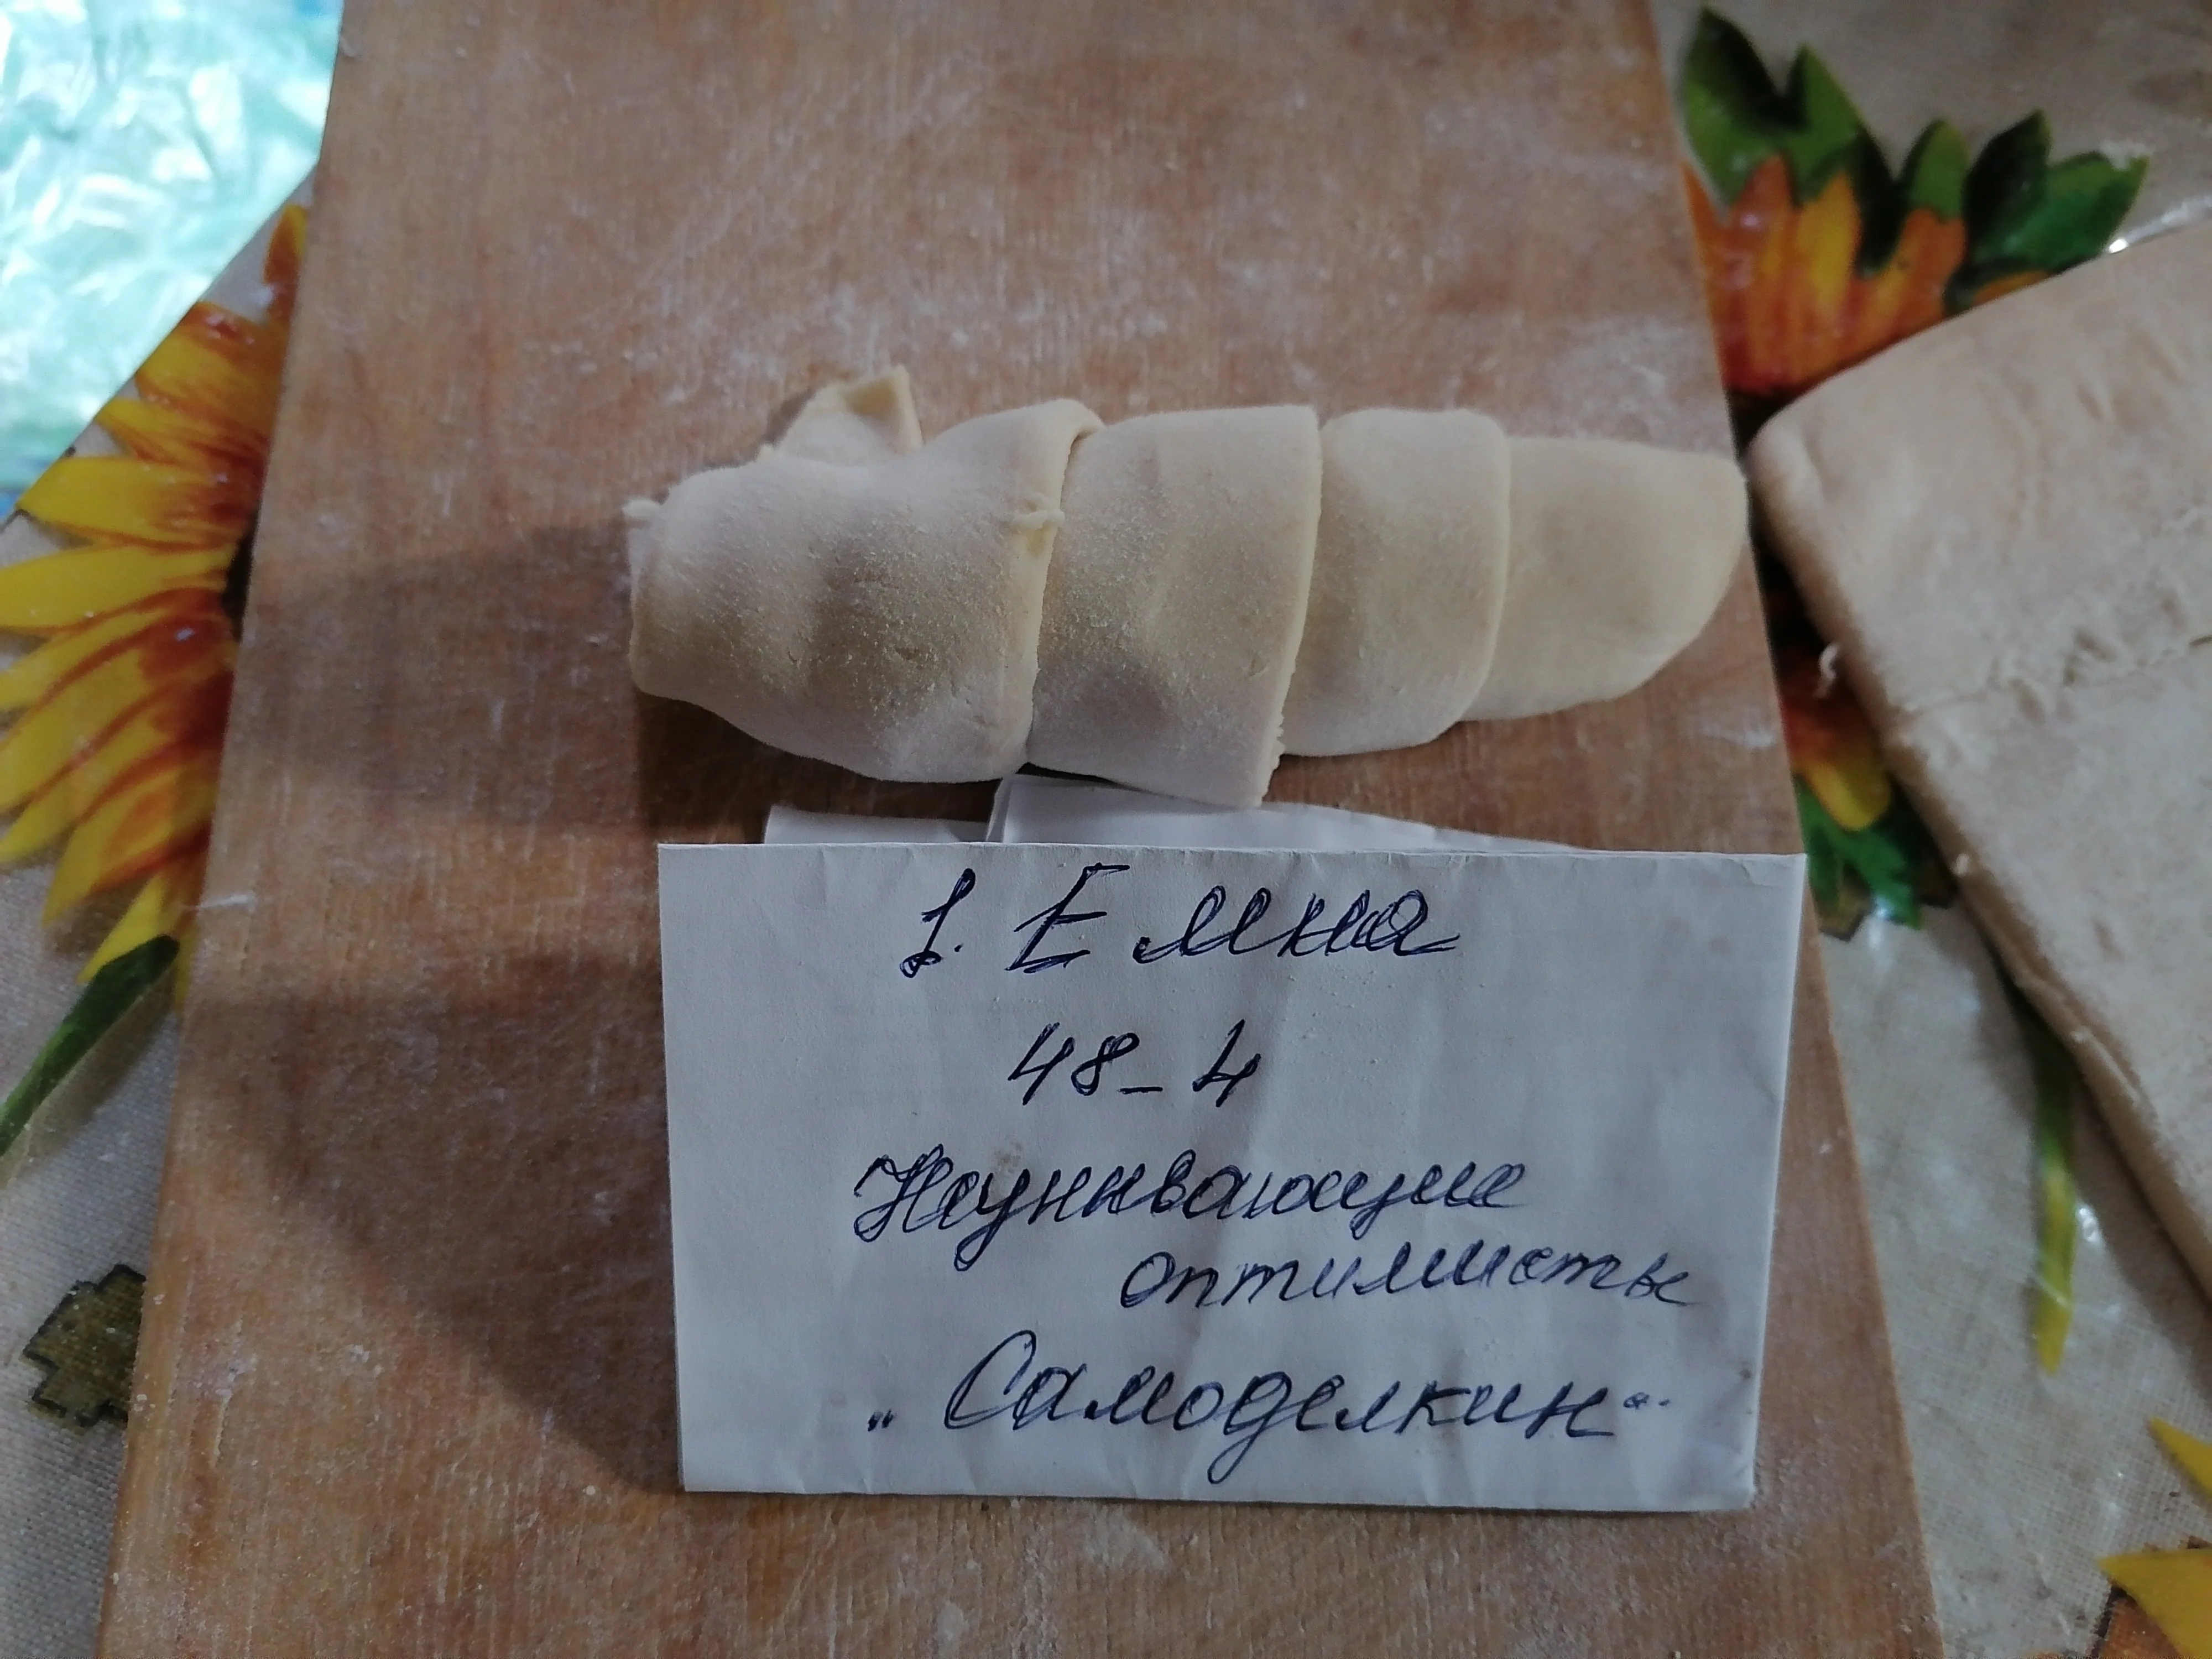 1. Емна
48-4
Неунывающие
оптимисты
„Самоделкин“.